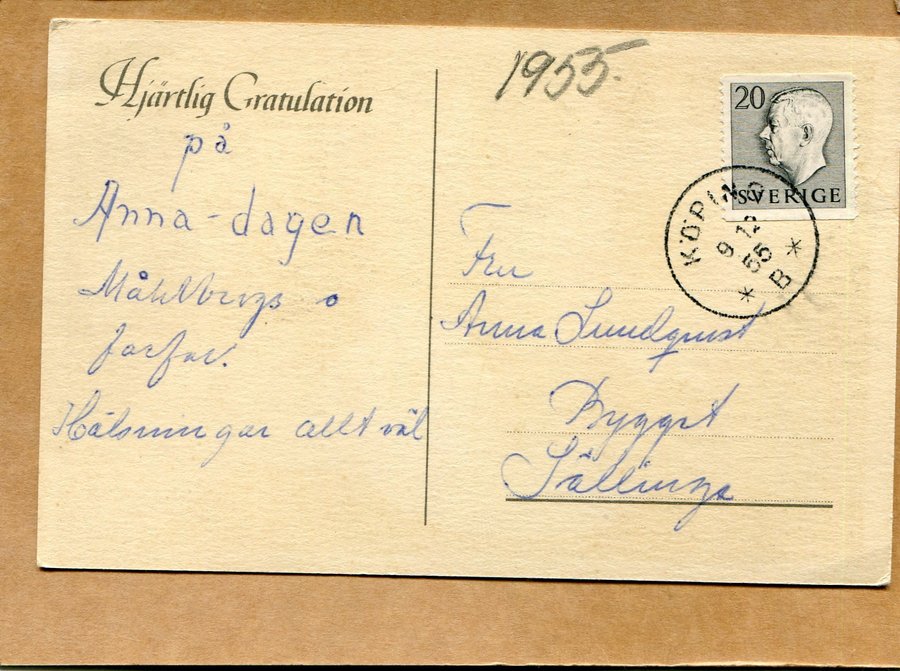 Hjärtlig Gratulation
på
Anna-dagen
Måhlbergs o
farfar.
Hälsningar allt väl
1955.
20
SVERIGE
KÖPING
9 12
55
* B *
Fru
Anna Lundquist
Bygget
Sällinge